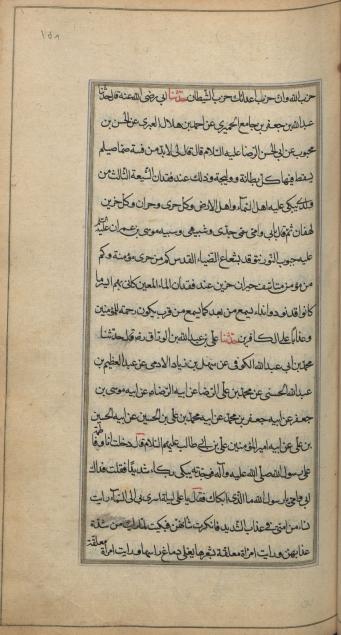 ١٥٨
حزب الله وان حزب اعدائك حزب الشيطان حدثنا ابى رضى الله عنه قال حدثنا
عبدالله بن جعفر بن جامع الحميرى عن احمد بن هلال العبرى عن الحسن بن
محبوب عن ابى الحسن الرضا عليه السلام قال قال لى لابد من فتنة صماء صيلم
يسقط فيها كل بطانة ووليجة وذلك عند فقدان الشيعة الثالث من
ولدى يبكى عليه اهل السماء واهل الارض وكل حرى وحران وكل حزين
لهفان ثم قال بابى وامى سمى جدى وشبيهى وشبيه موسى بن عمران عليه السلم
عليه جيوب النور يتوقد بشعاع الضياء القدس كم من حرى مؤمنة وكم
من مؤمن متاسف حيران حزين عند فقدان الماء المعين كانى بهم ايس ما
كانوا قد نودوا نداء يسمع من بعد كما يسمع من قرب يكون رحمة للمؤمنين
وعذابا على الكافرين حدثنا على بن عبدالله الوراق رضه قال حدثنا
محمد بن ابى عبدالله الكوفى عن سهل بن زياد الادمى عن عبدالعظيم بن
عبدالله الحسنى عن محمد بن على الرضا عن ابيه الرضا عن ابيه موسى بن
جعفر عن ابيه جعفر بن محمد عن ابيه محمد بن على عن ابيه على بن الحسين عن ابيه الحسين
بن على عن ابيه امير المؤمنين على بن ابى طالب عليهم السلام قال دخلت انا وفاطمة
على رسول الله صلى الله عليه وآله فوجدته يبكى بكاء شديدا فقلت فداك
ابى وامى يا رسول الله ما الذى ابكاك فقال يا على ليلة اسرى بى الى السماء رايت
نساء من امتى فى عذاب الشديد فانكرت شانهن فبكيت لما رايت من شدة
عذابهن ورايت امراة معلقة بشعرها يغلى دماغ راسها ورايت امراة معلقة